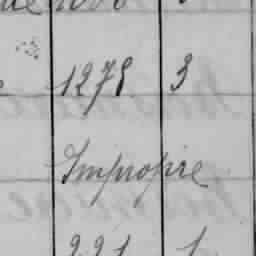 1278 3
Impropre
221 1